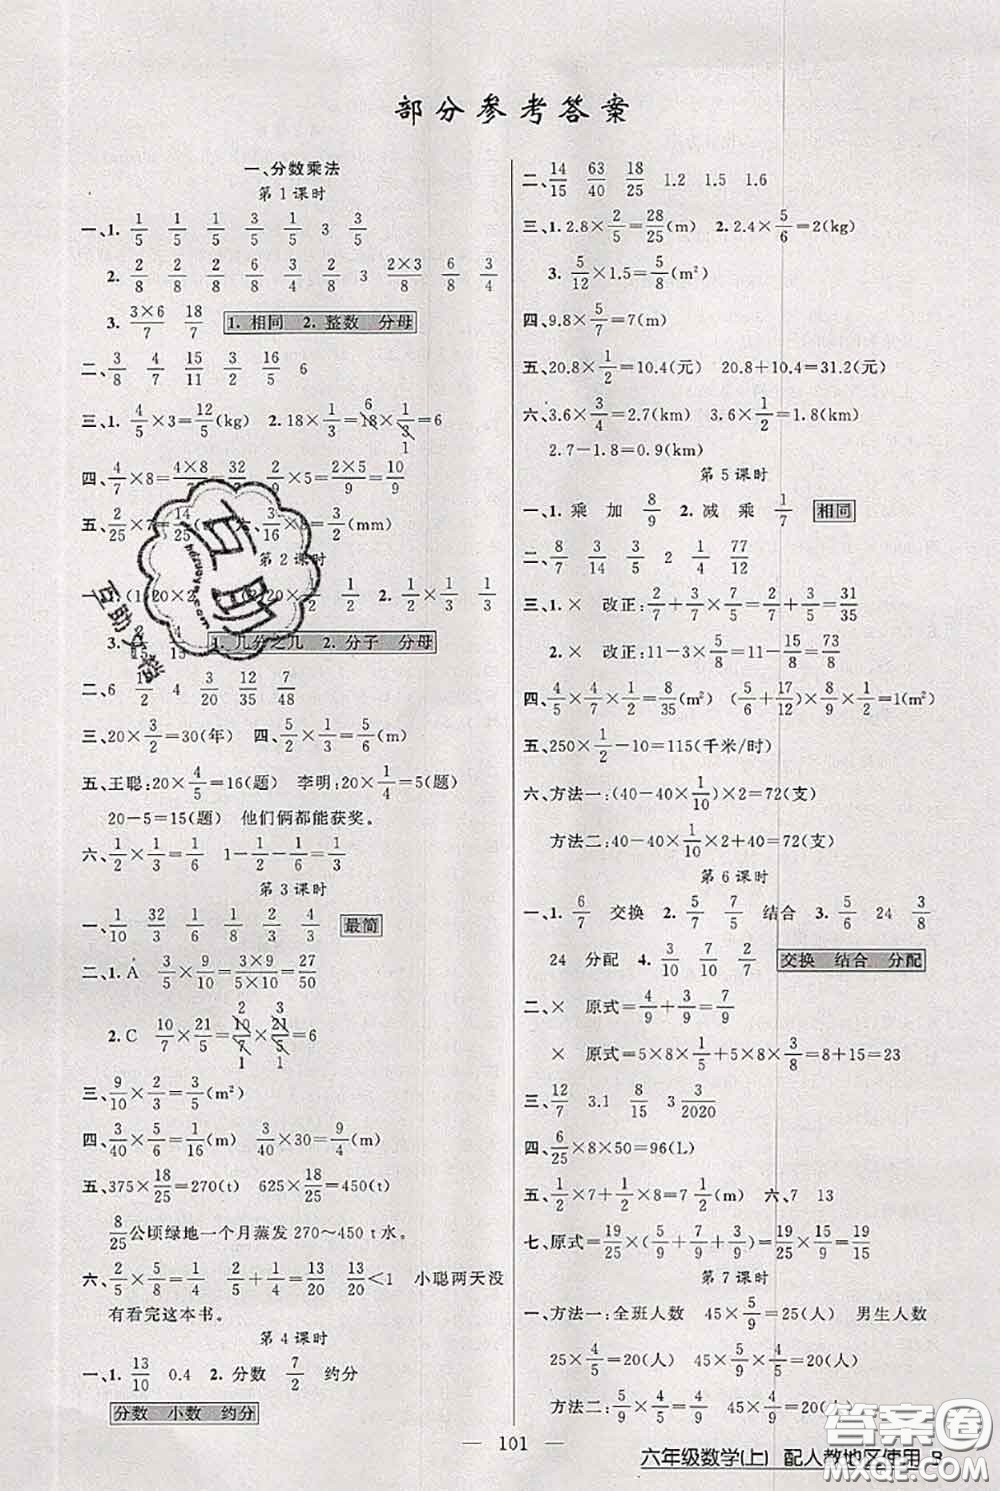 部分参考答案
一、分数乘法
第1课时
一、1. 1/5 1/5 1/5 3/5 1/5 3 3/5
2. 2/8 2/8 2/8 6/8 2/8 3 (2×3)/8 6/8 3/4
3. (3×6)/7 18/7 1. 相同 2. 整数 分母
二、3/8 4/7 15/11 3/2 16/5 6
三、1. 4/5×3=12/5(kg) 2. 18×1/3=18×1/3=6
四、4/7×8=(4×8)/7=32/7 2/9×5=(2×5)/9=10/9
五、2/25×7= 六、3/16×8=3/2(mm)
第2课时
一、1. (1)20×2 (2)20×1/2 1/2 2. 1/2×1/2 1/4
3. 15 1. 几分之几 2. 分子 分母
二、6 1/2 4 3/20 12/35 7/48
三、20×3/2=30(年) 四、5/2×1/3=5/6(m)
五、王聪:20×4/5=16(题) 李明:20×1/4=5(题)
20-5=15(题) 他们俩都能获奖。
六、1/2×1/3=1/6 1-1/2-1/6=1/3
第3课时
一、1/10 32/3 1/6 1/8 2/3 4/3 最简
二、1. A 3/5×9/10=(3×9)/(5×10)=27/50
2. C 10/7×21/5=10/7×21/5=6
三、9/10×2/3=3/5(m²)
四、3/40×5/6=1/16(m) 3/40×30=9/4(m)
五、375×18/25=270(t) 625×18/25=450(t)
8/25公顷绿地一个月蒸发270～450 t水。
六、2/5×5/8=1/4 2/5+1/4=13/20 13/20<1 小聪两天没
有看完这本书。
第4课时
一、1. 13/10 0.4 2. 分数 7/2 约分
分数 小数 约分
二、14/15 63/40 18/25 1.2 1.5 1.6
三、1. 2.8×2/5=28/25(m) 2. 2.4×5/6=2(kg)
3. 5/12×1.5=5/8(m²)
四、9.8×5/7=7(m)
五、20.8×1/2=10.4(元) 20.8+10.4=31.2(元)
六、3.6×3/4=2.7(km) 3.6×1/2=1.8(km)
2.7-1.8=0.9(km)
第5课时
一、1. 乘 加 8/9 2. 减 乘 1/7 相同
二、8/7 3/4 2 1/4 77/12
三、1. × 改正:2/7+3/7×7/5=2/7+3/5=31/35
2. × 改正:11-3×5/8=11-15/8=73/8
四、4/5×4/7×1/2=8/35(m²) (5/6+17/12)×8/9×1/2=1(m²)
五、250×1/2-10=115(千米/时)
六、方法一:(40-40×1/10)×2=72(支)
方法二:40-40×1/10×2+40=72(支)
第6课时
一、1. 6/7 交换 2. 5/7 7/5 结合 3. 5/6 24 3/8
24 分配 4. 3/10 7/10 2/7 交换 结合 分配
二、× 原式=4/9+3/9=7/9
× 原式=5×8×1/5+5×8×3/8=8+15=23
三、12/7 3.1 8/15 3 3/2020
四、6/25×8×50=96(L)
五、1/2×7+1/2×8=7 1/2(m) 六、7 13
七、原式=19/25×(5/9+7/9+3/9)=19/25×15/9=19/15
第7课时
一、方法一:全班人数 45×5/9=25(人) 男生人数
25×4/5=20(人) 45×5/9×4/5=20(人)
方法二:5/9×4/5=4/9 45×4/9=20(人)
— 101 —
六年级数学(上) 配人教地区使用 B
互助
互助文档
答案圈
MXQE.COM